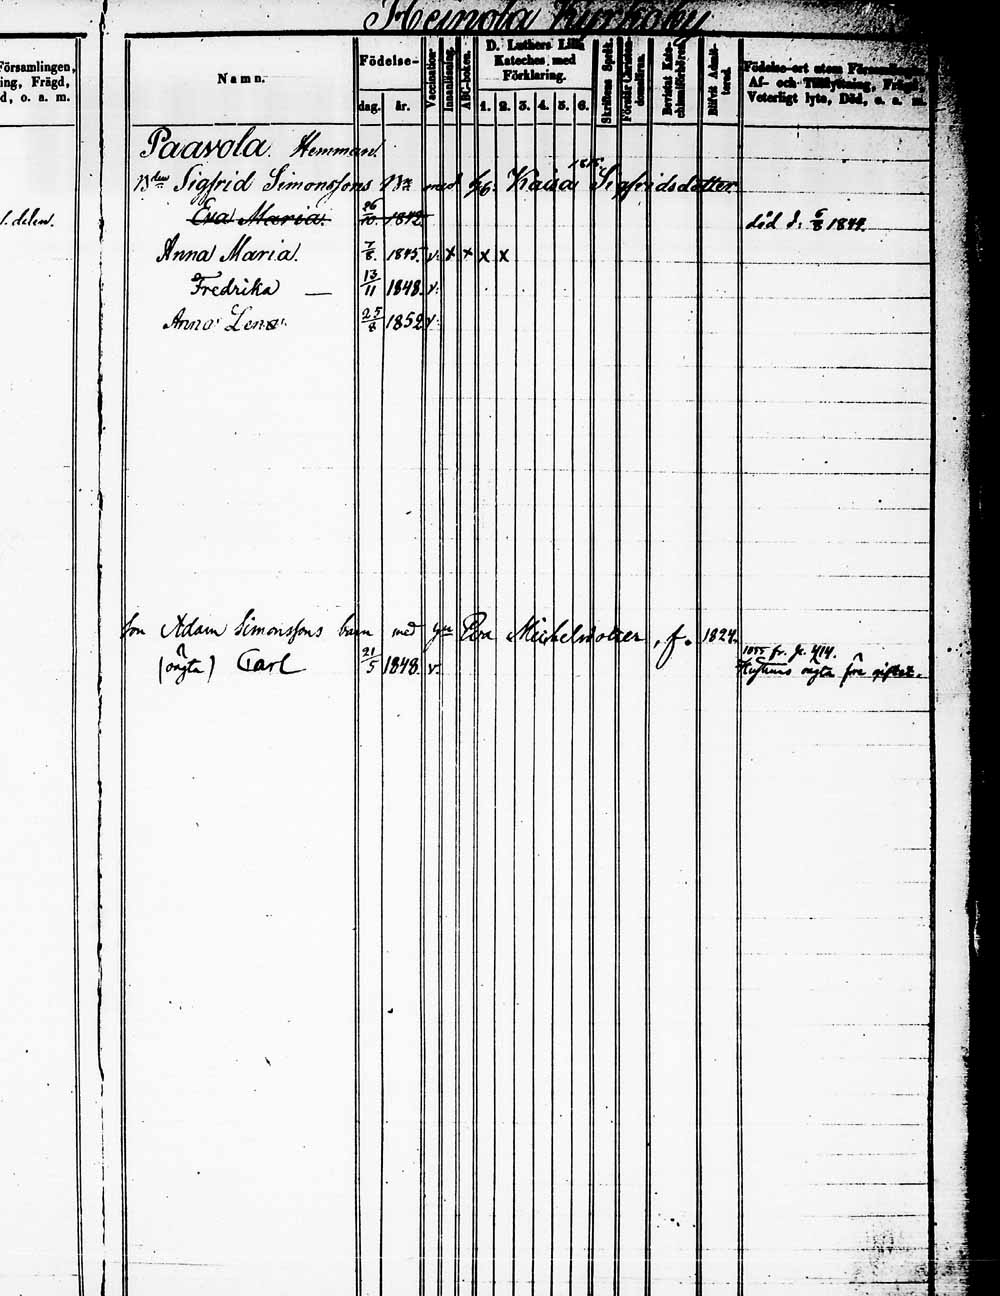 Heinola Kyrkoby
Församlingen,
ing, Frägd,
d, o. a. m.
Namn.
Födelse-
dag. år.
Vaccination
Innanläsning.
ABC-boken.
D. Luthers Lilla
Kateches med
Förklaring.
1. 2. 3. 4. 5. 6.
Skriftens Språk.
Förstår Christendomslären.
Bevistat Katechismiförhören.
Blifvit Admitterad.
Födelse-ort utom Församlingen,
Af- och Tillflyttning, Frägd,
Veterligt lyte, Död, o. a. m.
Paavola Hemman.
Bden Sigfrid Simonssons Bn med Kaisa 1818 Sigfridsdotter
Eva Maria. 26/10 1842 död d. 6/8 1844.
delen.
Anna Maria. 7/8 1845. v. x x x x
Fredrika — 13/11 1848. v.
Anna Lena. 25/8 1852 v.
Son Adam Simonssons barn med Eva Michelsdotter, f. 1824.
(oägta) Carl 21/5 1848. v. 1855 fr. p. 414.
Hustruns oägta före giftet.